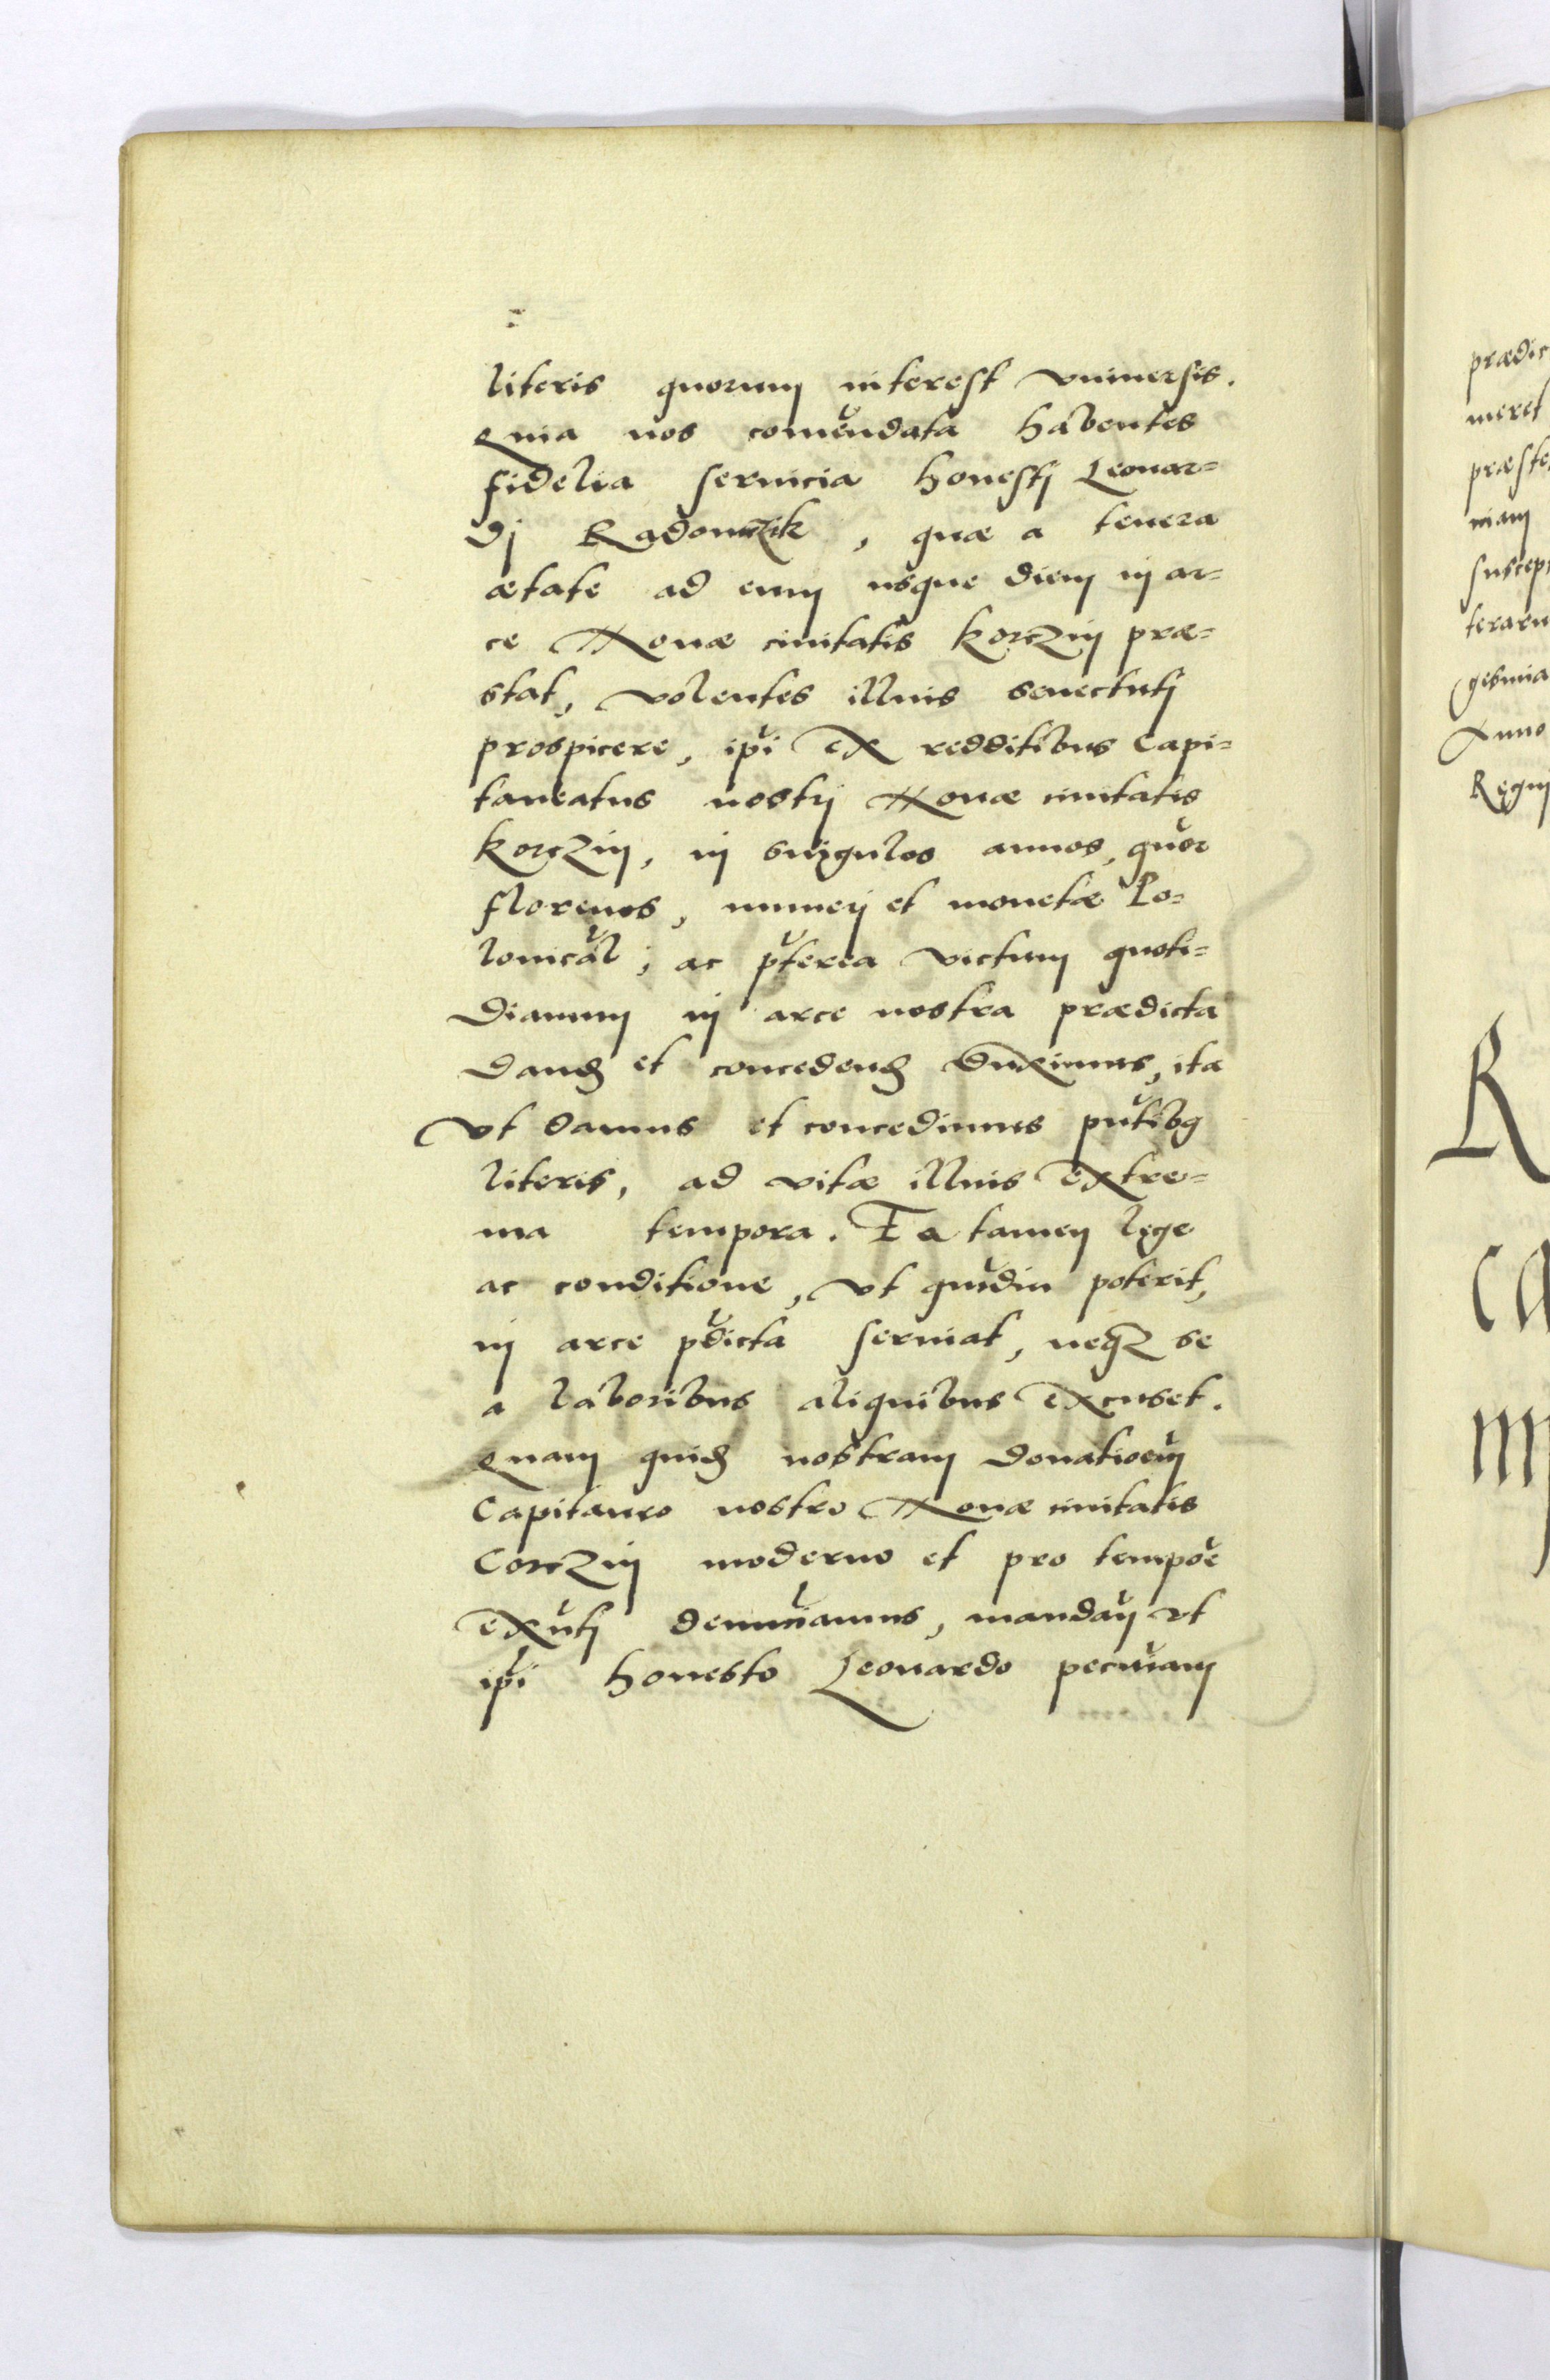 literis quorum interest vniuersis.
Quia nos comendata habentes
fidelia seruicia honesti Leonar=
di Radomczik, quæ a tenera
ætate ad eum usque diem in ar=
ce Nouæ ciuitatis Korczin præ=
stat, volentes illius senectuti
prospicere, ipi ex redditibus Capi=
taneatus nostri Nouæ ciuitatis
Korczin, in singulos annos, quor
florenos, numeri et monetæ Po=
lonical, ac pterea victum quoti=
dianum in arce nostra prædicta
dand et concedend duximus, ita
vt damus et concedimus pntibg
literis, ad vitæ illius extre=
ma tempora. Ea tamen lege
ac conditione, vt qudiu poterit,
in arce pdicta seruiat, neqz se
a laboribus aliquibus excuset.
Quam quid nostram donatioem
Capitaneo nostro Nouæ ciuitatis
Corczin moderno et pro tempoe
exnti denunciamus, mandan vt
ipi honesto Leonardo pecuniam
prædic
meret
præste
niam
suscep
teraru
gesima
Anno
Regni
R
ca